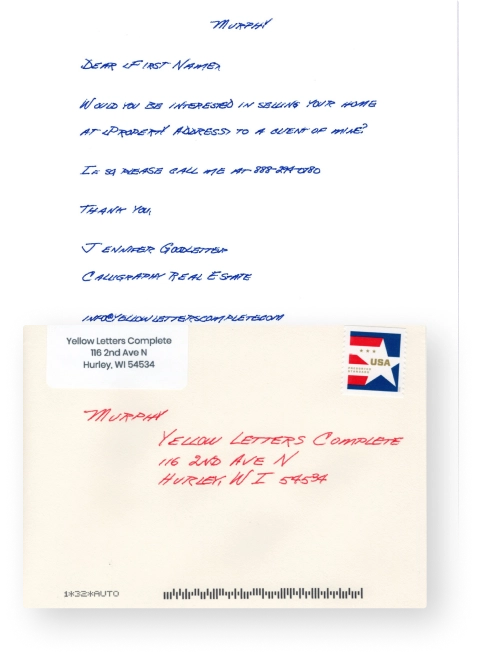 MURPHY
DEAR <FIRST NAME>,
WOULD YOU BE INTERESTED IN SELLING YOUR HOME
AT <PROPERTY ADDRESS> TO A CLIENT OF MINE?
IF SO PLEASE CALL ME AT 888-294-0780
THANK YOU,
JENNIFER GOODLETTER
CALLIGRAPHY REAL ESTATE
INFO@YELLOWLETTERSCOMPLETE.COM
Yellow Letters Complete
116 2nd Ave N
Hurley, WI 54534
USA
MURPHY
YELLOW LETTERS COMPLETE
116 2ND AVE N
HURLEY, WI 54534
1*32*AUTO